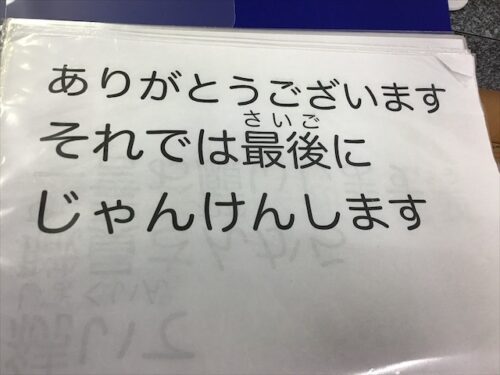 ありがとうございます
それでは最後に
さいご
じゃんけんします